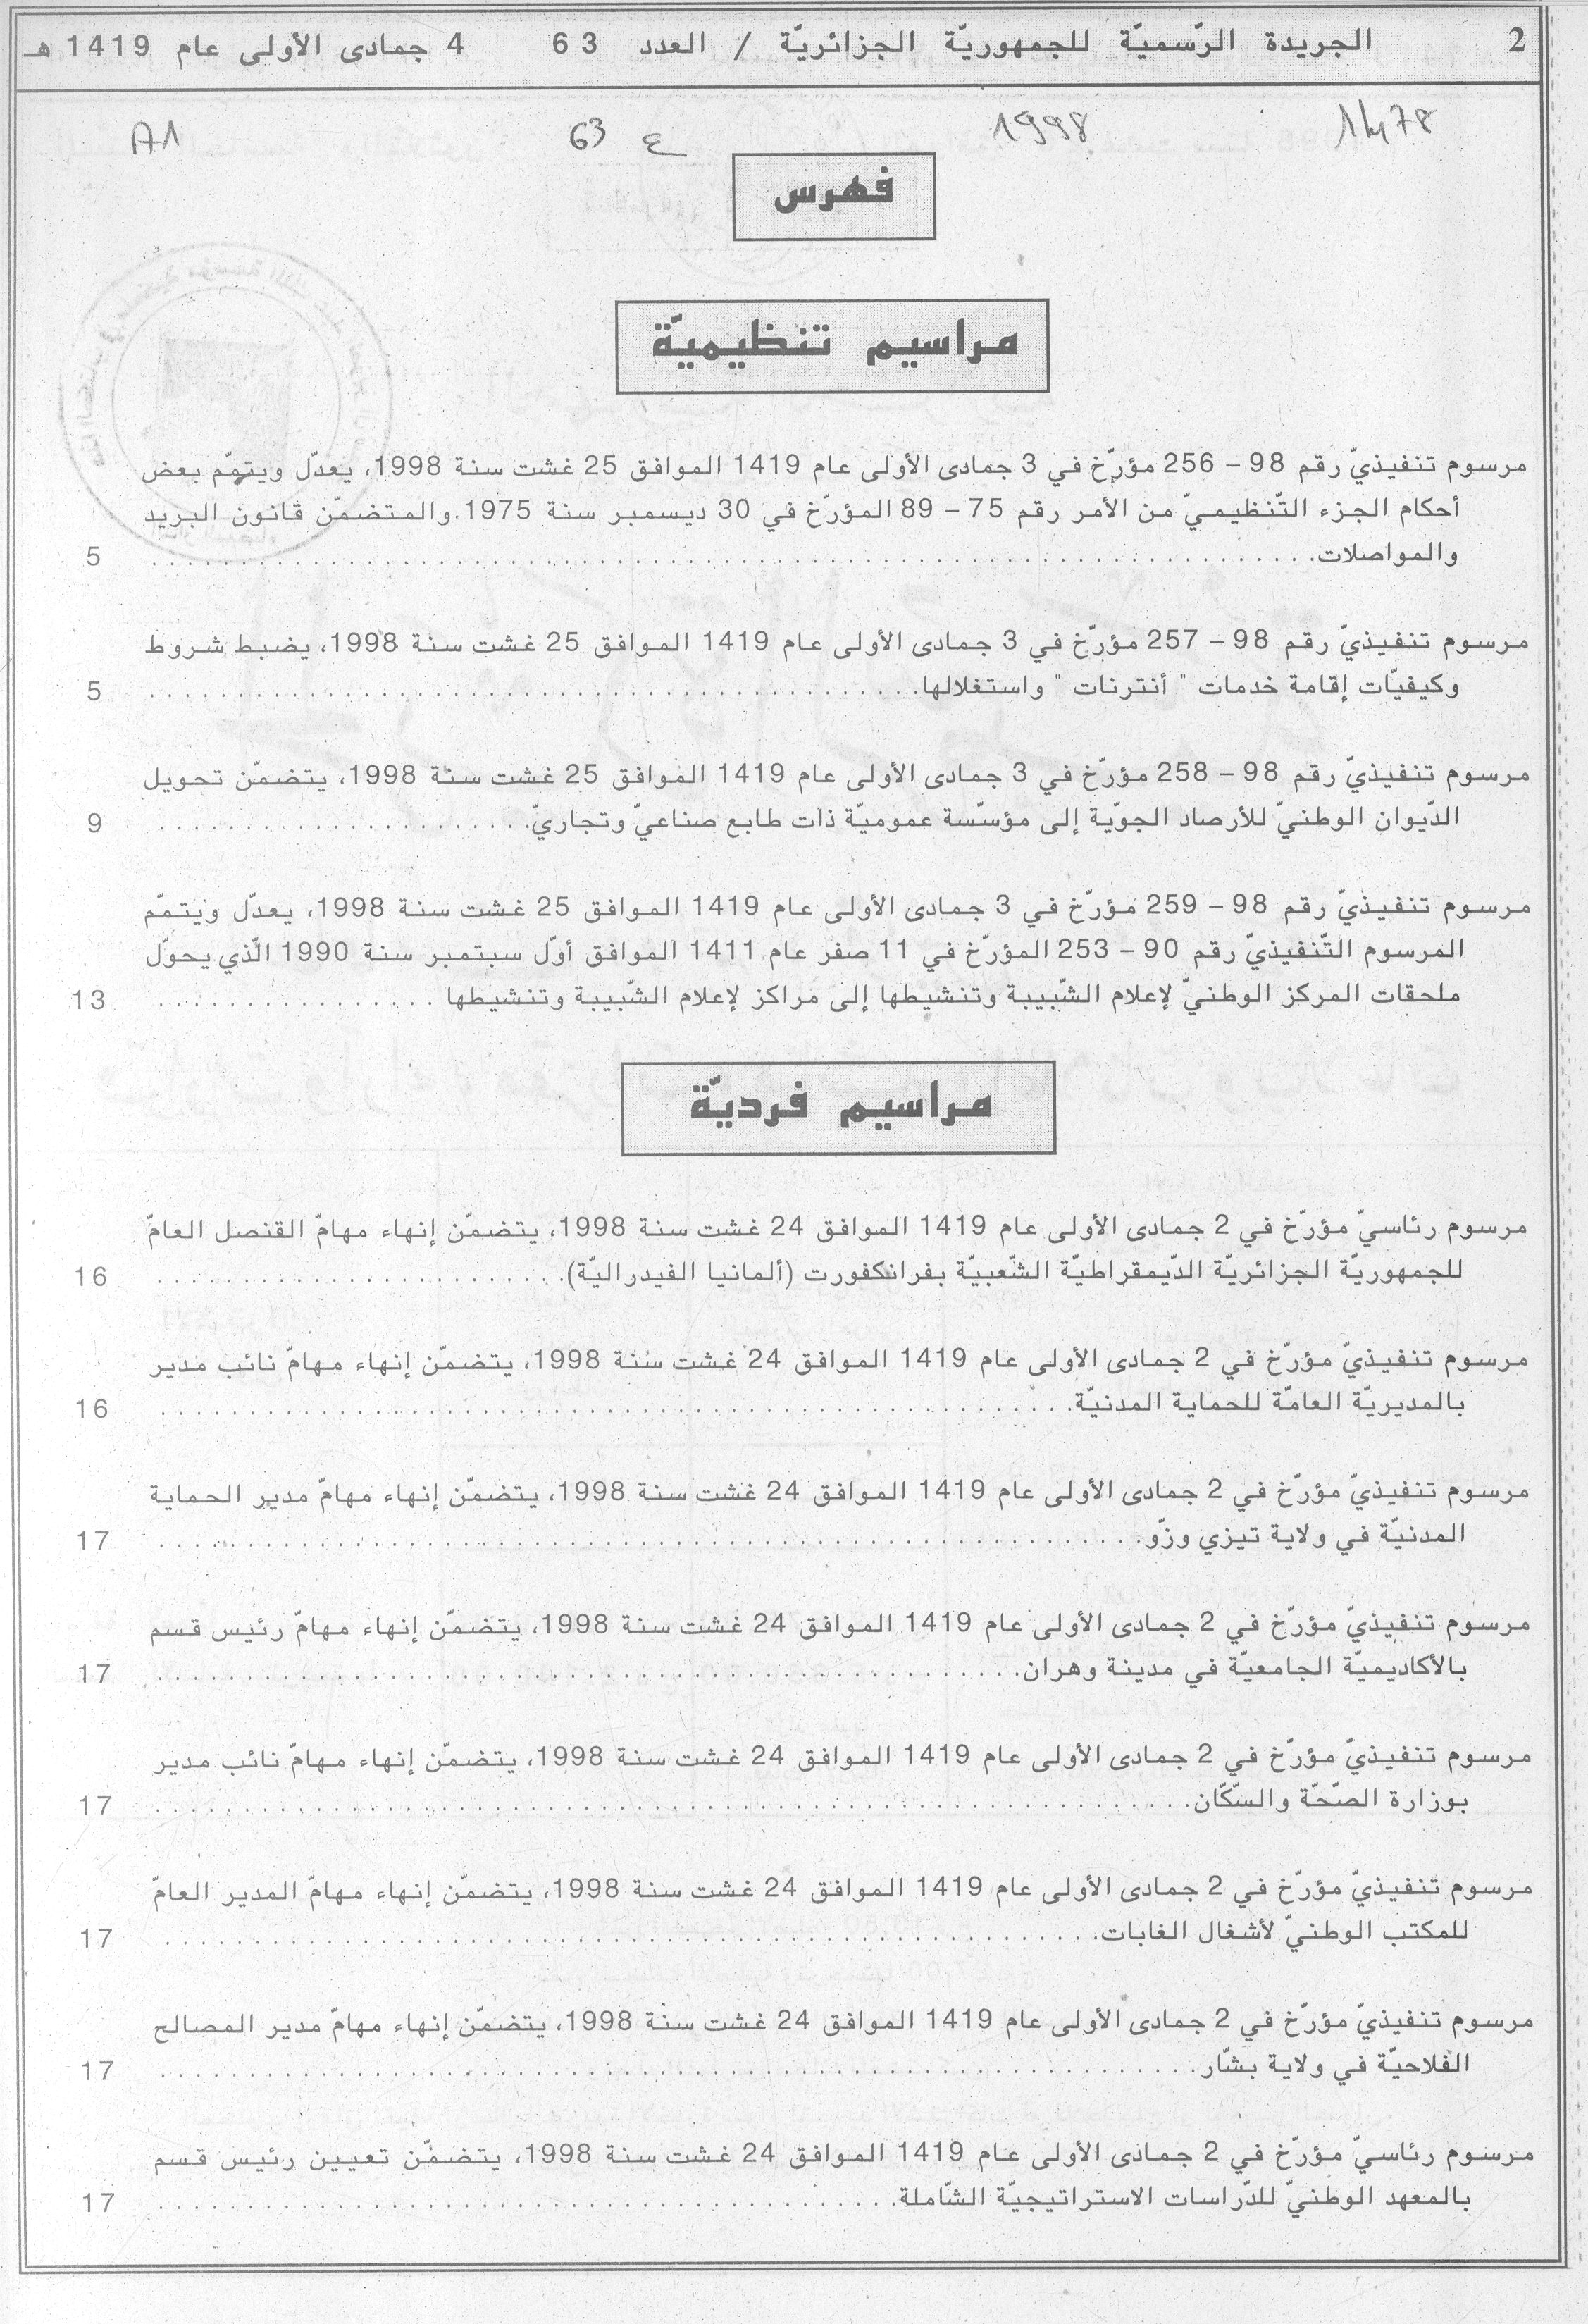 2 الجريدة الرّسميّة للجمهوريّة الجزائريّة / العدد 63 4 جمادى الأولى عام 1419 هـ
1998 ع 63 A1
فهرس
مراسيم تنظيميّة
مرسوم تنفيذيّ رقم 98 – 256 مؤرّخ في 3 جمادى الأولى عام 1419 الموافق 25 غشت سنة 1998، يعدّل ويتمّم بعض
أحكام الجزء التّنظيميّ من الأمر رقم 75 – 89 المؤرّخ في 30 ديسمبر سنة 1975 والمتضمّن قانون البريد
والمواصلات. 5
مرسوم تنفيذيّ رقم 98 – 257 مؤرّخ في 3 جمادى الأولى عام 1419 الموافق 25 غشت سنة 1998، يضبط شروط
وكيفيّات إقامة خدمات " أنترنات " واستغلالها. 5
مرسوم تنفيذيّ رقم 98 – 258 مؤرّخ في 3 جمادى الأولى عام 1419 الموافق 25 غشت سنة 1998، يتضمّن تحويل
الدّيوان الوطنيّ للأرصاد الجوّية إلى مؤسّسة عموميّة ذات طابع صناعيّ وتجاريّ. 9
مرسوم تنفيذيّ رقم 98 – 259 مؤرّخ في 3 جمادى الأولى عام 1419 الموافق 25 غشت سنة 1998، يعدّل ويتمّم
المرسوم التّنفيذيّ رقم 90 – 253 المؤرّخ في 11 صفر عام 1411 الموافق أوّل سبتمبر سنة 1990 الّذي يحوّل
ملحقات المركز الوطنيّ لإعلام الشّبيبة وتنشيطها إلى مراكز لإعلام الشّبيبة وتنشيطها 13
مراسيم فرديّة
مرسوم رئاسيّ مؤرّخ في 2 جمادى الأولى عام 1419 الموافق 24 غشت سنة 1998، يتضمّن إنهاء مهامّ القنصل العامّ
للجمهوريّة الجزائريّة الدّيمقراطيّة الشّعبيّة بفرانكفورت (ألمانيا الفيدراليّة). 16
مرسوم تنفيذيّ مؤرّخ في 2 جمادى الأولى عام 1419 الموافق 24 غشت سنة 1998، يتضمّن إنهاء مهامّ نائب مدير
بالمديريّة العامّة للحماية المدنيّة. 16
مرسوم تنفيذيّ مؤرّخ في 2 جمادى الأولى عام 1419 الموافق 24 غشت سنة 1998، يتضمّن إنهاء مهامّ مدير الحماية
المدنيّة في ولاية تيزي وزّو. 17
مرسوم تنفيذيّ مؤرّخ في 2 جمادى الأولى عام 1419 الموافق 24 غشت سنة 1998، يتضمّن إنهاء مهامّ رئيس قسم
بالأكاديميّة الجامعيّة في مدينة وهران. 17
مرسوم تنفيذيّ مؤرّخ في 2 جمادى الأولى عام 1419 الموافق 24 غشت سنة 1998، يتضمّن إنهاء مهامّ نائب مدير
بوزارة الصّحّة والسّكّان. 17
مرسوم تنفيذيّ مؤرّخ في 2 جمادى الأولى عام 1419 الموافق 24 غشت سنة 1998، يتضمّن إنهاء مهامّ المدير العامّ
للمكتب الوطنيّ لأشغال الغابات. 17
مرسوم تنفيذيّ مؤرّخ في 2 جمادى الأولى عام 1419 الموافق 24 غشت سنة 1998، يتضمّن إنهاء مهامّ مدير المصالح
الفلاحيّة في ولاية بشّار. 17
مرسوم رئاسيّ مؤرّخ في 2 جمادى الأولى عام 1419 الموافق 24 غشت سنة 1998، يتضمّن تعيين رئيس قسم
بالمعهد الوطنيّ للدّراسات الاستراتيجيّة الشّاملة. 17